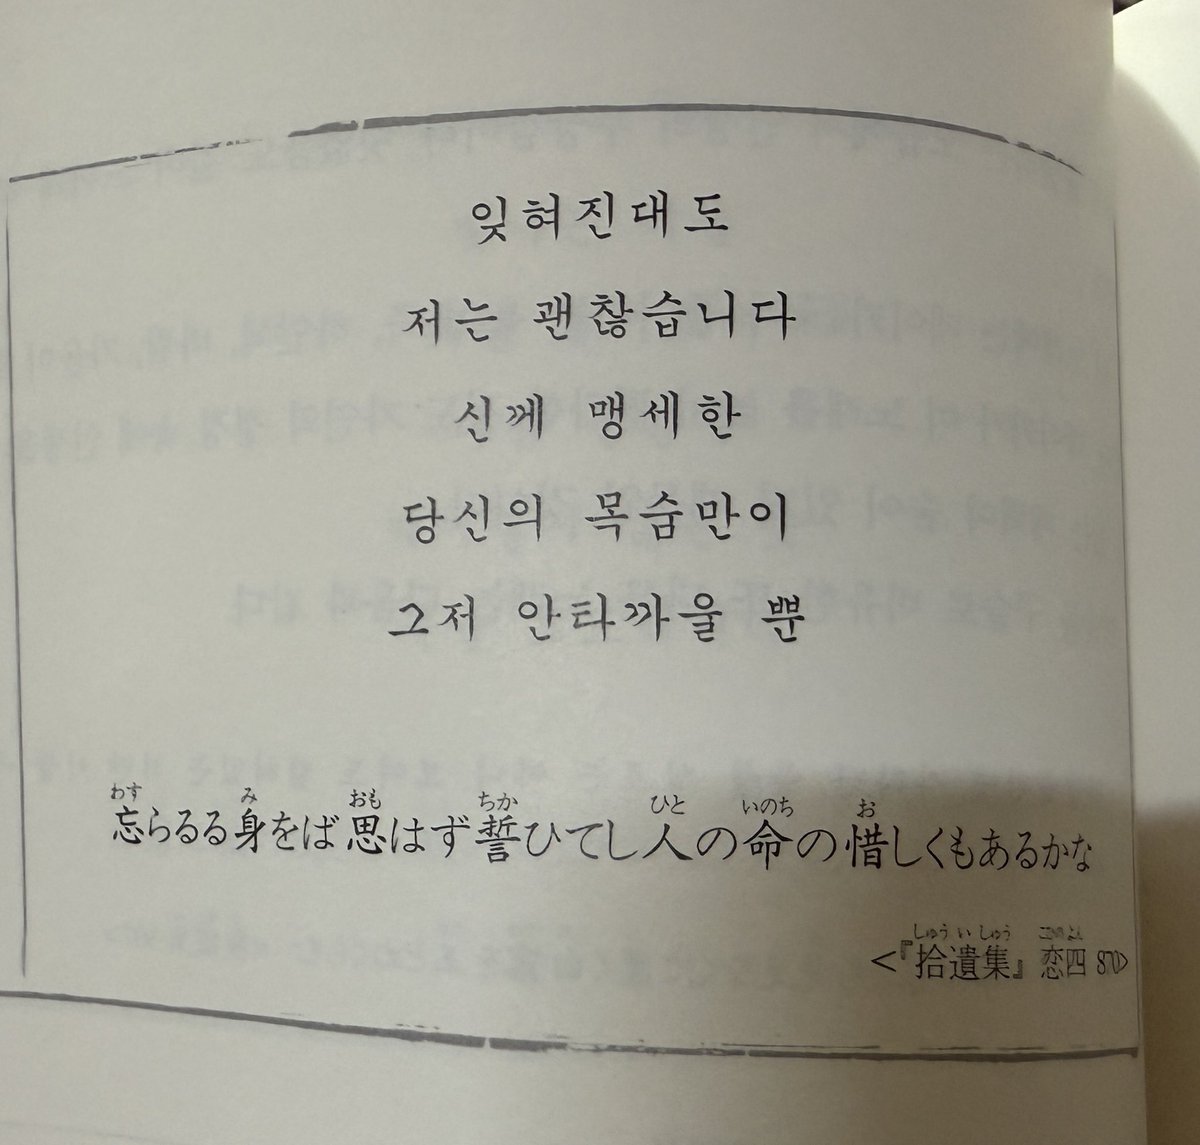 잊혀진대도
저는 괜찮습니다
신께 맹세한
당신의 목숨만이
그저 안타까울 뿐
わす み おも ちか ひと いのち お
忘らるる身をば思はず誓ひてし人の命の惜しくもあるかな
しゅう い しゅう こいのよん
<『拾遺集』 恋四 870>